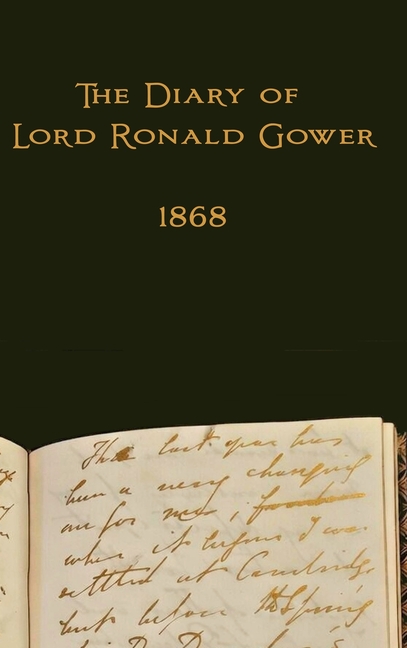 The Diary of
Lord Ronald Gower
1868
The last year has
been a very changing
one for me,
when it begun I was
settled at Cambridge
but before the Spring